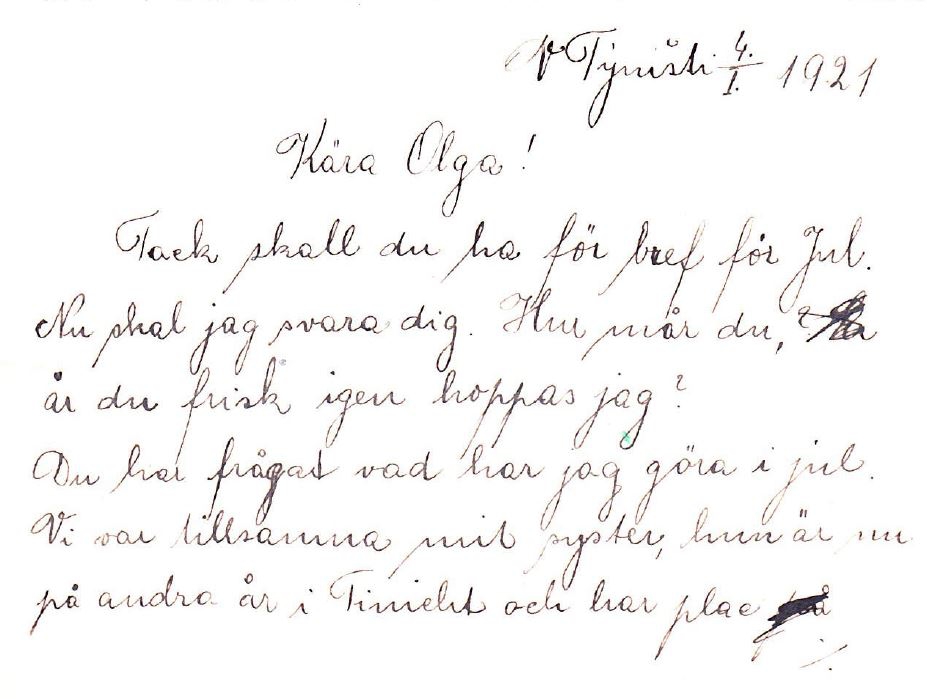 V Týništi 4./I. 1921
Kära Olga!
Tack skall du ha för bref för Jul.
Nu skal jag svara dig. Hur mår du,?
är du frisk igen hoppas jag?
Du har frågat vad har jag göra i jul.
Vi var tillsamma mit syster, hun är nu
på andra år i Tinicht och har plac
./.